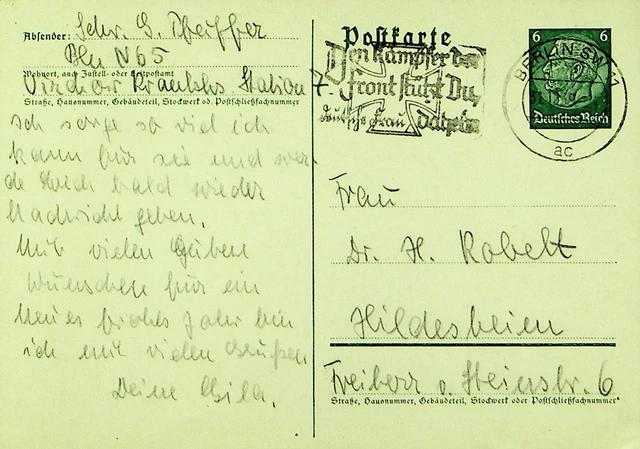 Absender: Schw. G. Pfeiffer
Bln N 65
Wohnort, auch Zustell- oder Leitpostamt
Virchow Krankhs. Station 7.
Straße, Hausnummer, Gebäudeteil, Stockwerk od. Postschließfachnummer
Ich sorge so viel ich
kann für sie und wer-
de Dich bald wieder
Nachricht geben.
Mit vielen Guten
Wünschen für ein
Neues frohes Jahr bin
ich mit vielen Grüßen
Deine Gila.
Postkarte
Den Kämpfer der
Front stützt Du,
deutsche Frau, daheim
BERLIN SW 11
ac
6 6
Deutsches Reich
Frau
Dr. H. Kobelt
Hildesheim
Freiherr v. Steinstr. 6
Straße, Hausnummer, Gebäudeteil, Stockwerk oder Postschließfachnummer